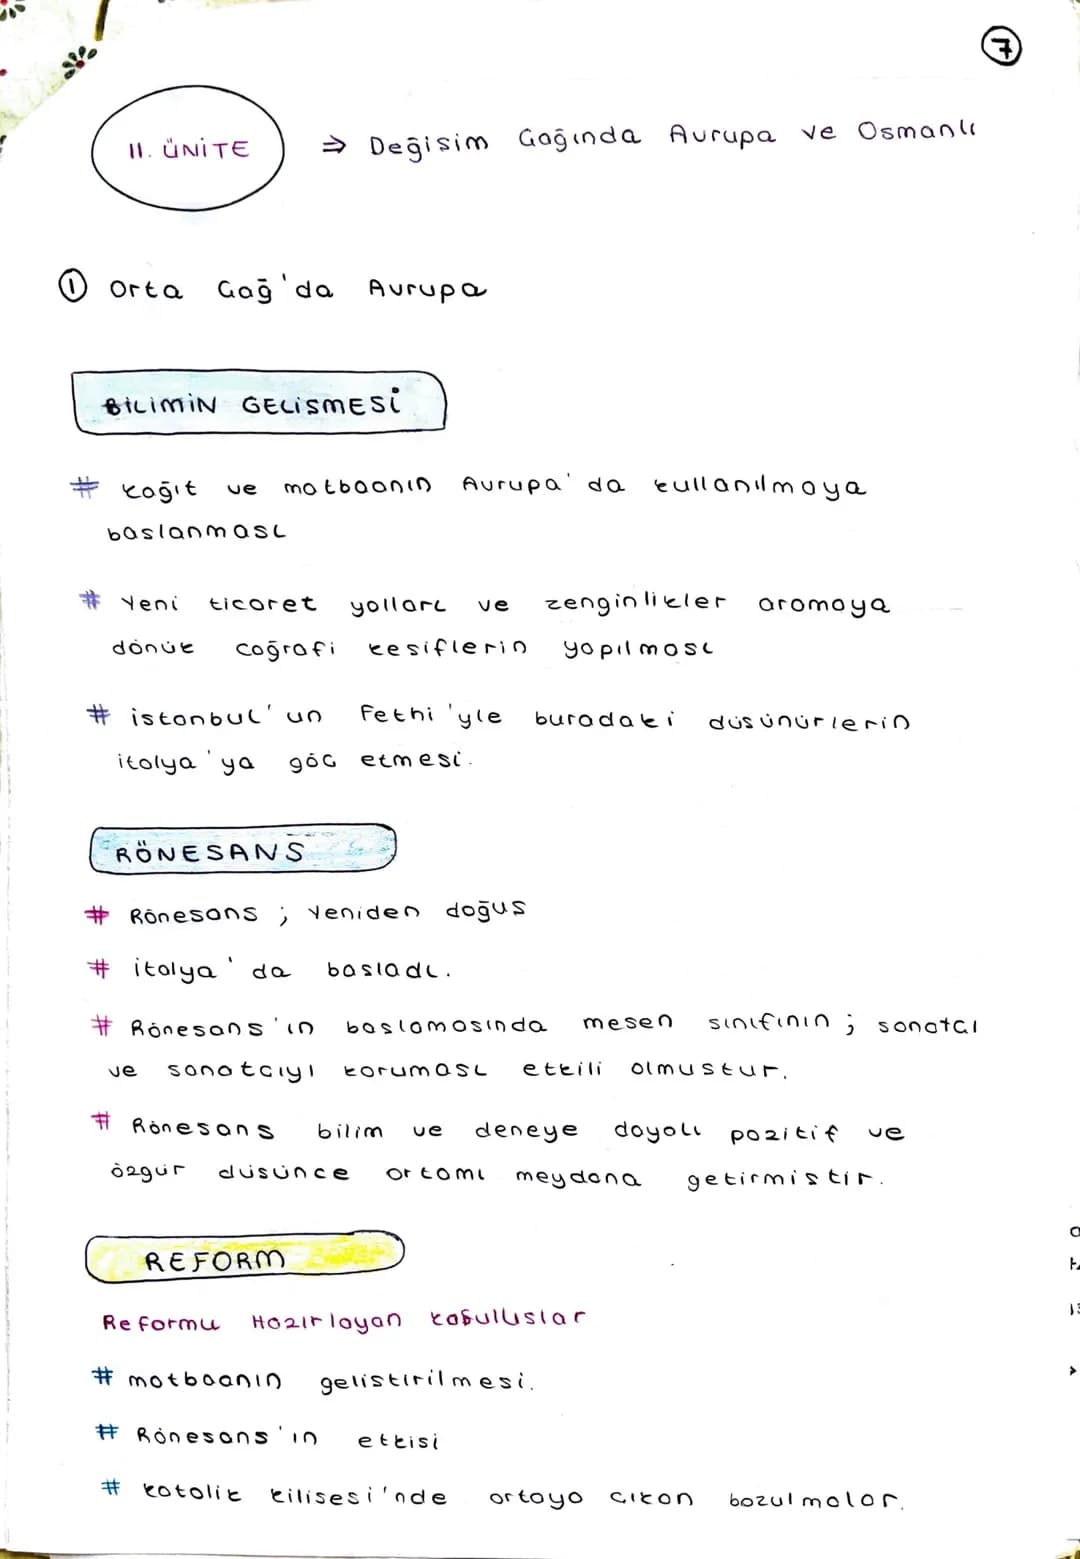 7
II. ÜNİTE ⇒ Değisim Çağında Avrupa ve Osmanlı
① Orta Çağ'da Avrupa
BİLİMİN GELİSMESİ
# kağıt ve matbaanın Avrupa'da kullanılmaya
baslanması
# Yeni ticaret yolları ve zenginlikler aramaya
dönük coğrafi kesiflerin yapılması
# istanbul'un Fethi'yle buradaki düsünürlerin
italya'ya göç etmesi.
RÖNESANS
# Rönesans ; Yeniden doğus
# italya'da basladı.
# Rönesans'ın baslamasında mesen sınıfının ; sanatçı
ve sanatçıyı koruması etkili olmustur.
# Rönesans bilim ve deneye dayalı pozitif ve
özgür düsünce ortamı meydana getirmistir.
REFORM
Reformu Hazırlayan
# matbaanın gelistirilmesi.
# Rönesans'ın etkisi
# katolik kilisesi'nde ortaya çıkan bozulmalar.